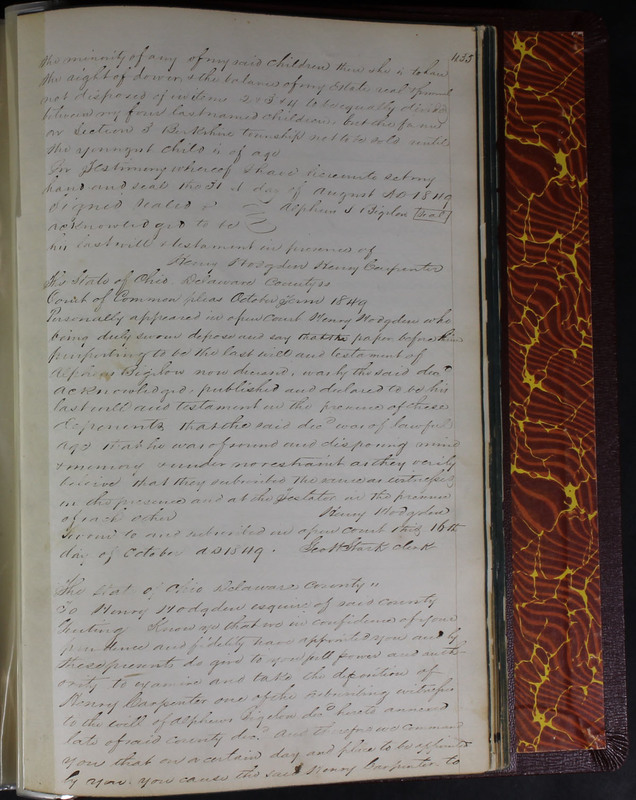 435
the minority of any of my said children then she is to have
the right of dower & the balance of my Estate real & personal
not disposed of in items 2 & 3 & 4 to be equally divided
between my four last named children but the farm
on Section 3 Berkshire township not to be sold until
the youngest child is of age
In Testimony whereof I have hereunto set my
hand and seal the 21st day of August AD 1849
Signed Sealed & Alpheus S Bigelow [Seal]
acknowledged to be
his last will & testament in presence of
Henry Hodgden Henry Carpenter
The State of Ohio Delaware County ss
Court of Common pleas October Term 1849
Personally appeared in open Court Henry Hodgden who
being duly sworn depose and say that the paper before him
purporting to be the last will and testament of
Alpheus Bigelow now deceased, was by the said decd
acknowledged, published and declared to be his
last will and testament in the presence of these
deponents that the said decd was of lawful
age that he was of sound and disposing mind
& memory & under no restraint as they verily
believe that they subscribed the same as witnesses
in the presence and at the Testator in the presence
of each other Henry Hodgden
Sworn to and subscribed in open court this 16th
day of October AD 1849. Geo W Stark Clerk
The State of Ohio Delaware County ss
To Henry Hodgden esquire of said County
Greeting Know ye that we in confidence of your
prudence and fidelity have appointed you and by
these presents do give to you full power and auth-
ority to examine and take the deposition of
Henry Carpenter one of the subscribing witnesses
to the will of Alpheus Bigelow decd hereto annexed
late of said County decd. And therefore we command
you that on a certain day and place to be appointed
by you, you cause the said Henry Carpenter to